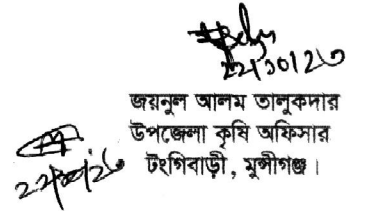 ২২/১০/২৩
জয়নুল আলম তালুকদার
উপজেলা কৃষি অফিসার
টংগিবাড়ী, মুন্সীগঞ্জ।